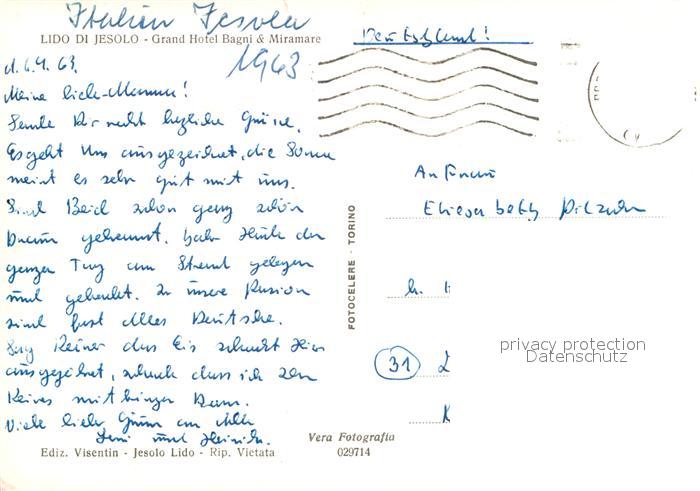 Italien Jesolo
LIDO DI JESOLO - Grand Hotel Bagni & Miramare
1963
Deutschland!
d. 6.9.63.
Meine liebe Mamma!
Sende Dir recht herzliche Grüsse.
Es geht Uns ausgezeichnet, die Sonne
meint es sehr gut mit uns.
Sind Beid schon ganz schön
Braun gebrannt. habe Heute den
ganzen Tag am Strand gelegen
und gebadet. In unsere Pension
sind fast Alles Deutsche.
Sag Reiner das Eis schmeckt Hier
ausgezeichnet, schade dass ich
mitbringen kann.
Viele liebe Grüsse an Alle
und Heinrich.
An Frau
Elisabeth
(31)
FOTOCELERE - TORINO
privacy protection
Datenschutz
Vera Fotografia
029714
Ediz. Visentin - Jesolo Lido - Rip. Vietata